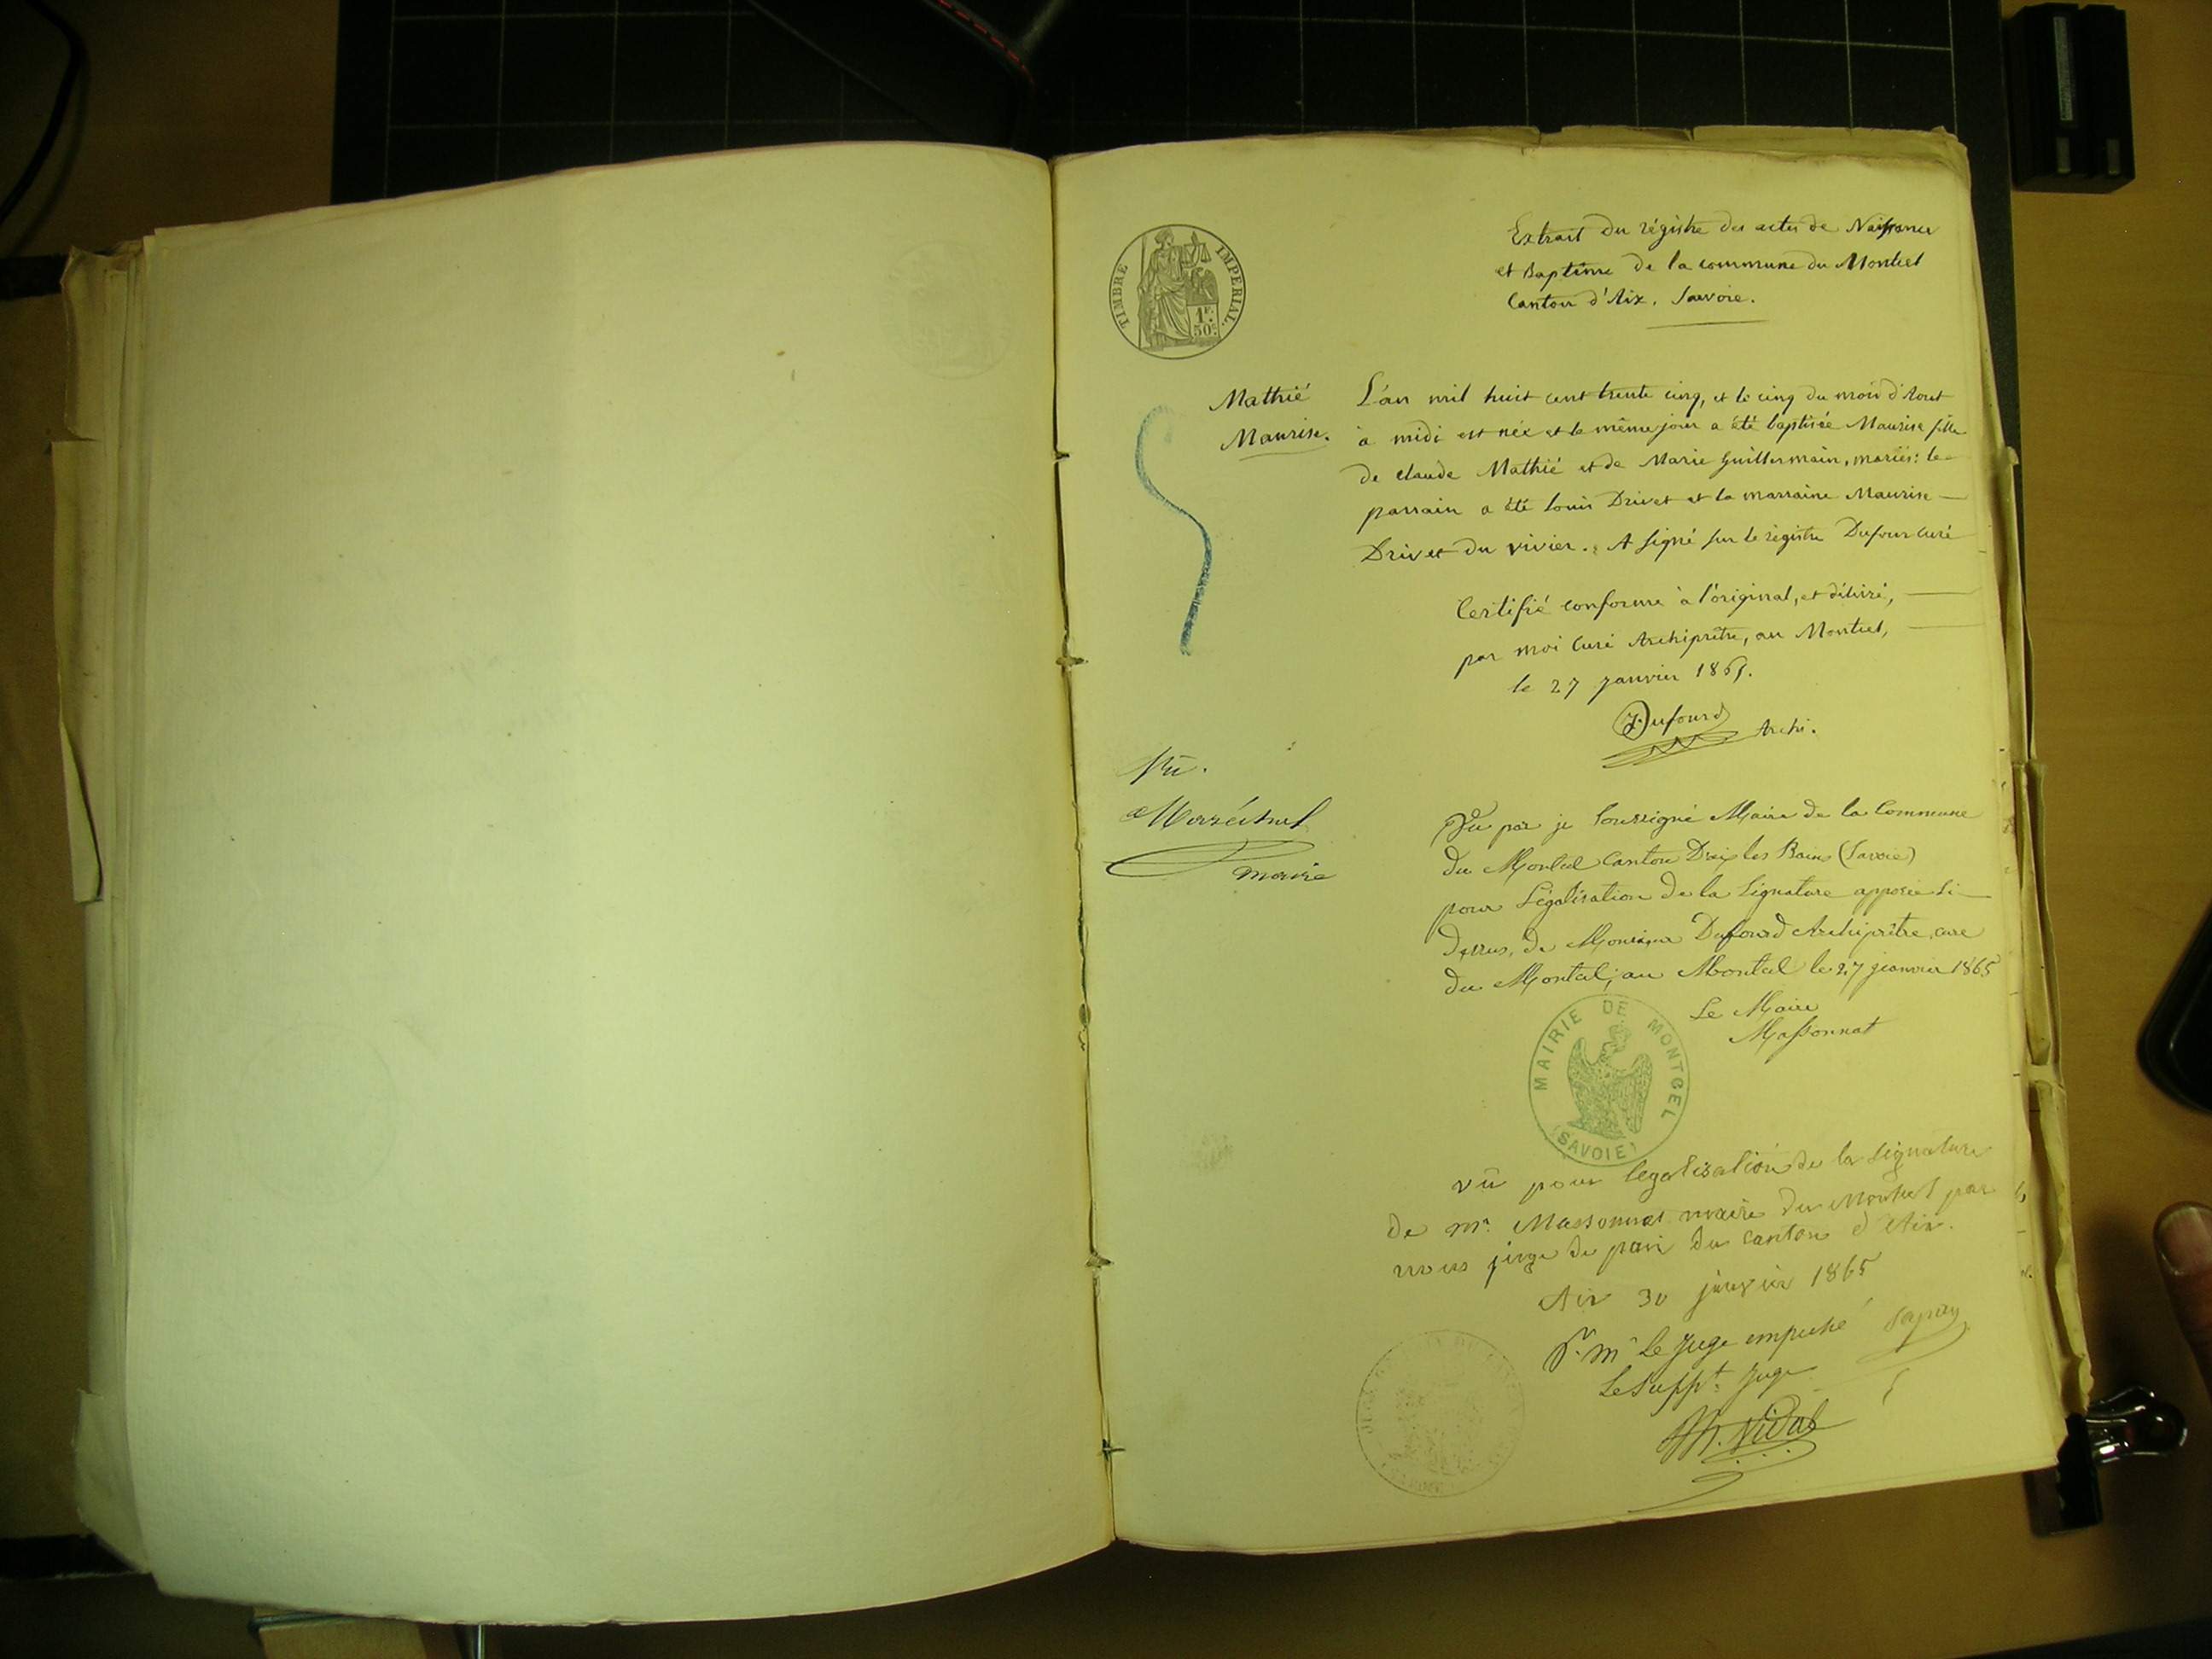 TIMBRE IMPERIAL.
1F.
50C.
Extrait du régistre des actes de Naissance
et Baptême de la commune du Montcel
Canton d'Aix. Savoie.
Mathié
Maurise.
L'an mil huit cent trente cinq, et le cinq du mois d'Aout
à midi est née et le même jour a été baptisée Maurise fille
de Claude Mathié et de Marie Guillermain, mariés: le
parrain a été Louis Drivet et la marraine Maurise
Drivet du vivier. A signé sur le régistre Dufour curé
Certifié conforme à l'original, et délivré,
par moi Curé Archiprêtre, au Montcel,
le 27 janvier 1865.
Dufourd Archi.
Vu.
maire
Vu par je soussigné Maire de la Commune
du Montcel Canton D'aix les Bains (Savoie)
pour Légalisation de la Signature apposée Si
dessus, de Monsieur Dufourd Archiprêtre, curé
du Montcel; au Montcel le 27 janvier 1865
Le Maire
Massonnat
MAIRIE DE MONTCEL
(SAVOIE)
vû pour legalisation de la signature
de mr. Massonnat maire du Montcel par
nous juge de paix du canton d'Aix.
Aix 30 janvier 1865
Pr. mr Le Juge empeché
Le Suppt. Juge
Vidal